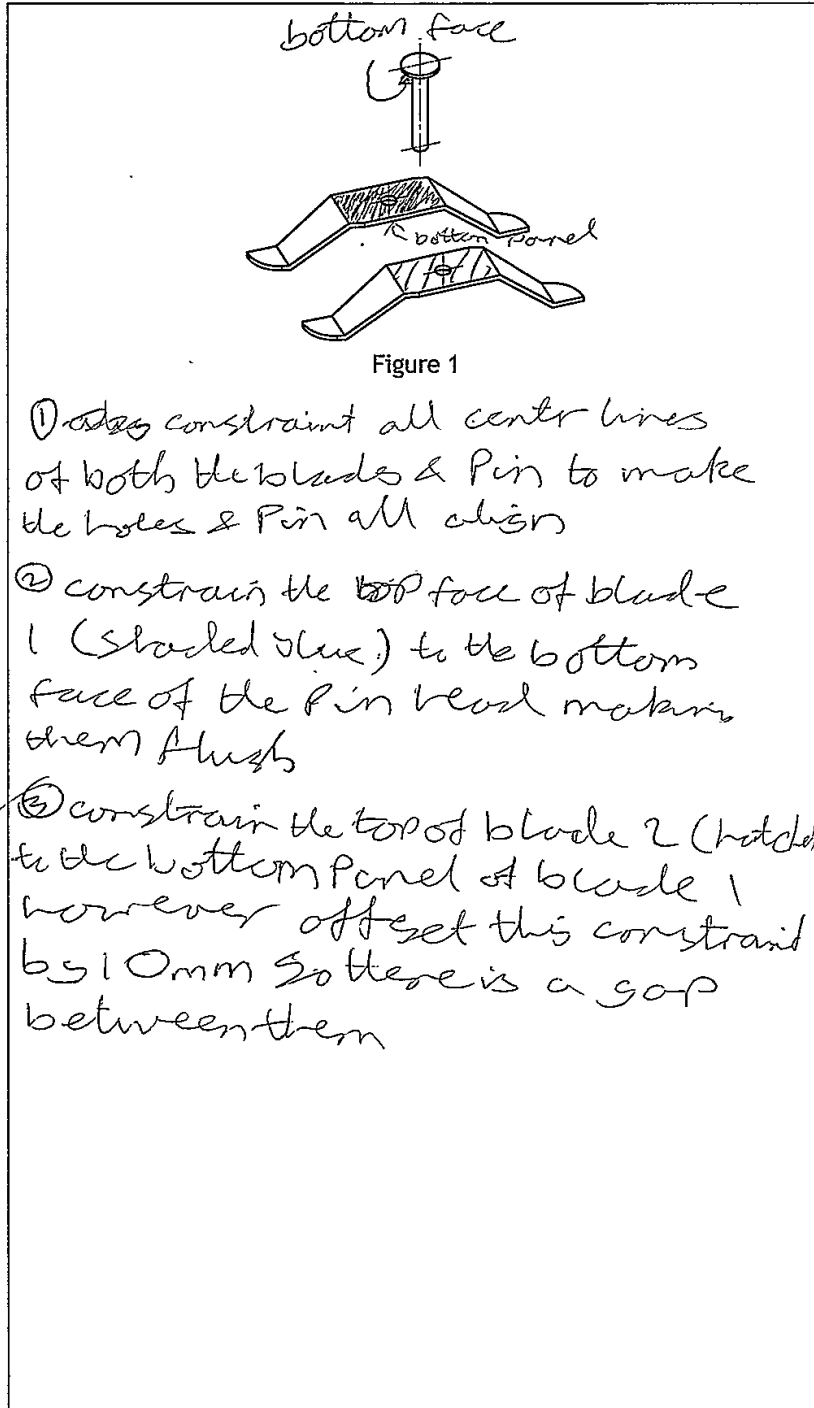 bottom face
bottom panel
Figure 1
① constraint all centr lines
of both the blades & Pin to make
the holes & Pin all align
② constrain the top face of blade
1 (shaded blue) to the bottom
face of the Pin head making
them flush
③ constrain the top of blade 2 (hatched
to the bottom Panel of blade 1
however offset this constraint
by 10mm So there is a gap
between them